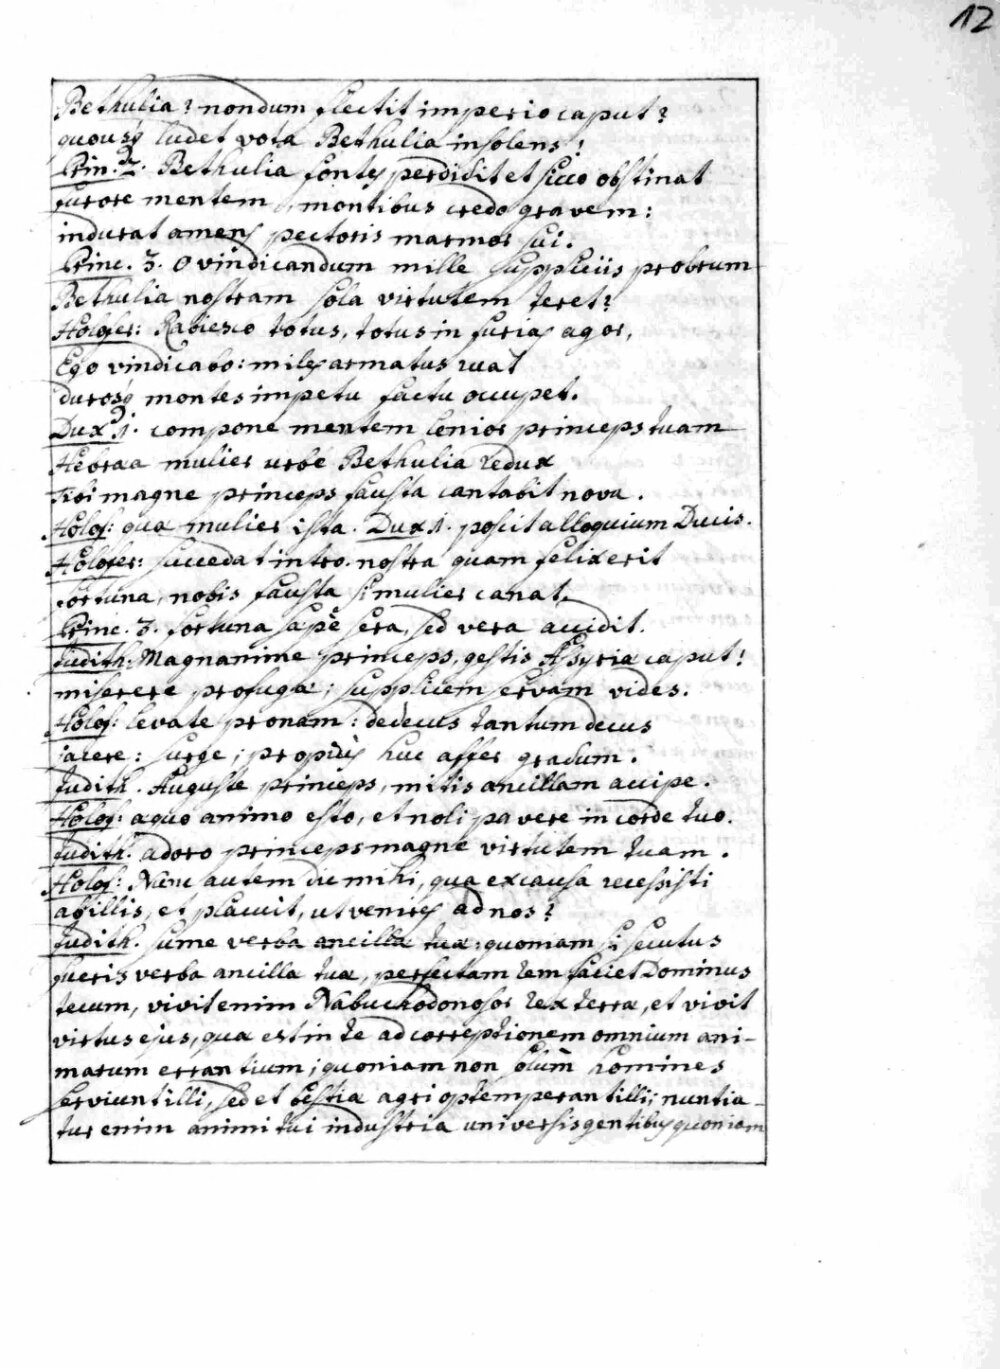 12
Bethulia? nondum flectit imperio caput?
quousq; ludet vota Bethulia insolens!
Prin. 2. Bethulia fontes perdidit et sicco obstinat
furore mentem, montibus credo gravem:
indurat amens pectoris marmor sui.
Princ. 3. O vindicandum mille suppliciis probrum
Bethulia nostram sola virtutem teret?
Holofer: Rabiesco totus, totus in furias agor,
Ego vindicabo: miles armatus ruat
durosq; montes impetu factu occupet.
Dux 1. compone mentem lenior princeps tuam
Hebræa mulier urbe Bethulia redux
tibi magne princeps fausta cantabit nova.
Holof: quæ mulier ista. Dux 1. poscit alloquium Ducis.
Holofer: succedat intro. nostra quam felix erit
fortuna, nobis fausta si mulier canat.
Princ. 3. fortuna sæpè sera, sed vera accidit.
Judith. Magnanime princeps, gestis Assyriæ caput!
miserere profugæ; supplicem servam vides.
Holof: levate pronam: dedecus tantum decus
jacere: surge; propiùs huc affer gradum.
Judith. Auguste princeps, mitis ancillam accipe.
Holof: æquo animo esto, et noli pavere in corde tuo.
Judith. adoro princeps magne virtutem tuam.
Holof: Nunc autem dic mihi, qua ex causa recessisti
ab illis, et placuit, ut venires ad nos?
Judith. sume verba ancillæ tuæ: quoniam si secutus
fueris verba ancillæ tuæ, perfectam rem faciet Dominus
tecum, vivit enim Nabuchodonosor rex terræ, et vivit
virtus ejus, quæ est in te ad correptionem omnium ani-
marum errantium; quoniam non solùm homines
serviunt illi, sed et bestiæ agri optemperant illi; nuntia-
tur enim animi tui industria universis gentibus, quoniam